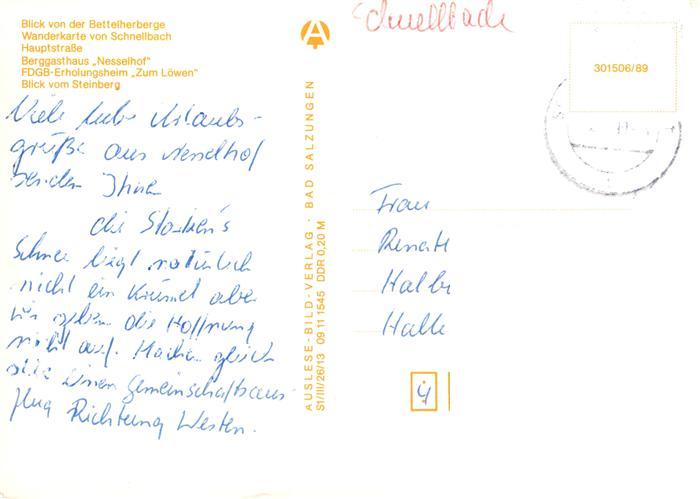 Blick von der Bettelherberge
Wanderkarte von Schnellbach
Hauptstraße
Berggasthaus „Nesselhof“
FDGB-Erholungsheim „Zum Löwen“
Blick vom Steinberg
Viele liebe Urlaubs-
grüße aus Nesselhof
senden Ihnen
die
Schnee liegt natürlich
nicht ein Krümel aber
wir geben die Hoffnung
nicht auf. Machen gleich
einen Gemeinschaftsaus-
flug Richtung Westen.
AUSLESE-BILD-VERLAG · BAD SALZUNGEN
S1/III/26/13 09 11 1545 DDR 0,20 M
Schnellbach
301506/89
Frau
Renate
Halle
4